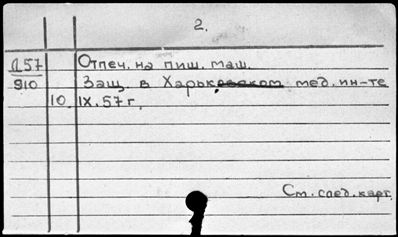 2.
Д57 Отпеч. на пиш. маш.
910 Защ. в Харьковском мед. ин-те
10. IX. 57 г.
См. след. карт.